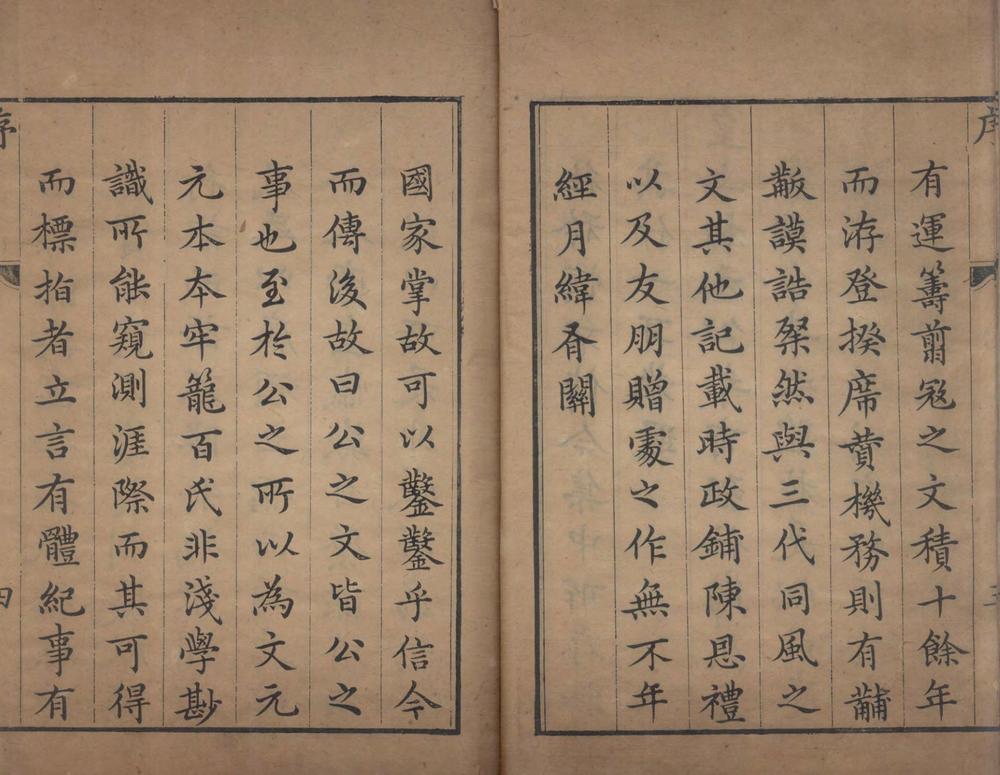 序
有運籌翦冦之文積十餘年
而洊登揆席贊機務則有黼
黻謨誥粲然與三代同風之
文其他記載時政鋪陳恩禮
以及友朋贈處之作無不年
經月緯胥關
國家掌故可以鑿鑿乎信今
而傳後故曰公之文皆公之
事也至於公之所以為文元
元本本牢籠百氏非淺學尠
識所能窺測涯際而其可得
而標指者立言有體紀事有
序
四